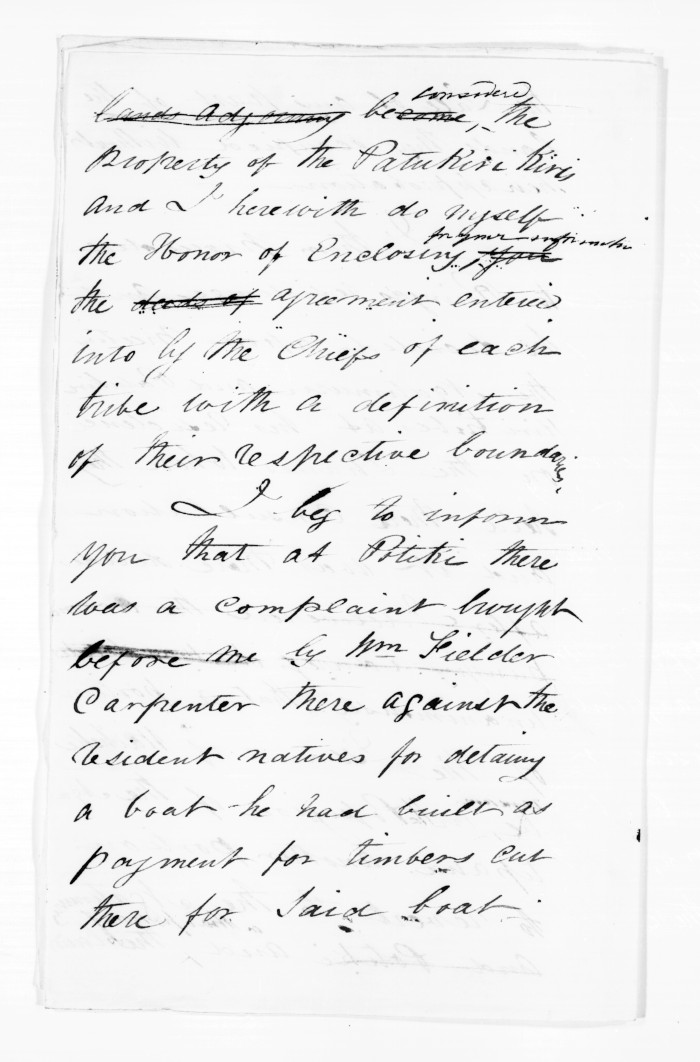 considered
lands adjoining become, the
Property of the Patukirikiris
and I herewith do myself
for your information
the Honor of Enclosing, you
the deeds of agreement entered
into by the Chiefs of each
tribe with a definition
of their respective boundaries,
I beg to inform
you that at Potiki there
was a complaint brought
before me by Wm Fielder
Carpenter there against the
resident natives for detaing
a boat he had built as
payment for timbers cut
there for said boat.